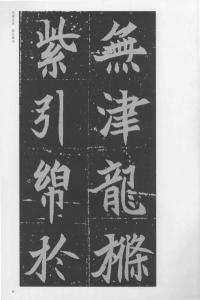 無津龍㯶
紫引綿於